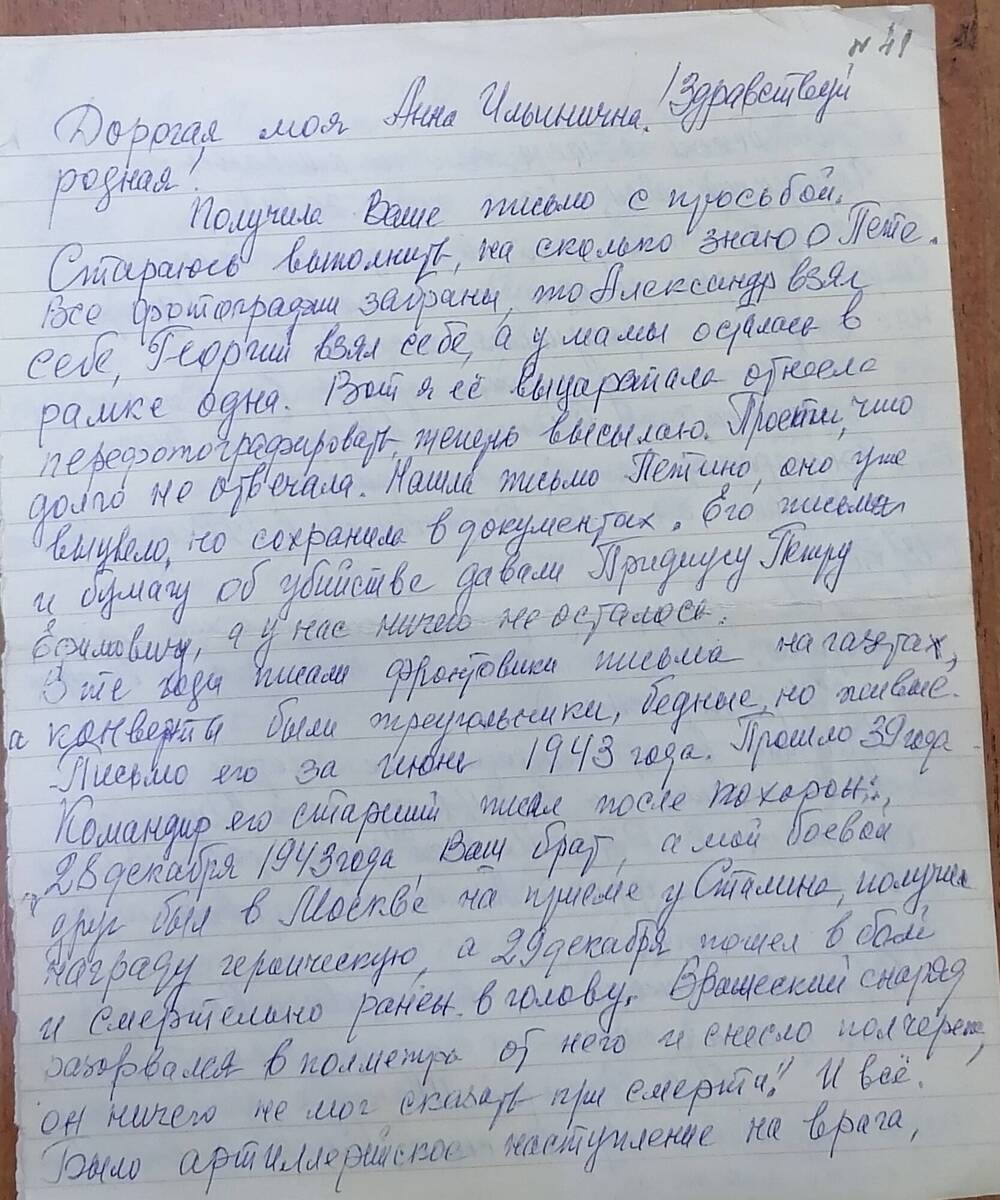 № 41
Дорогая моя Анна Ильинична! Здравствуй
родная!
Получила Ваше письмо с просьбой.
Стараюсь выполнить, на сколько знаю о Пете.
Все фотографии забраны, то Александр взял
себе, Георгий взял себе, а у мамы осталась в
рамке одна. Вот я её выцарапала отнесла
перефотографировать, теперь высылаю. Прости, что
долго не отвечала. Нашла письмо Петино, оно уже
но сохранила в документах. Его письма
и бумагу об убийстве давали Придиусу Петру
Ефимовичу, а у нас ничего не осталось.
В те годы писали фронтовики письма на газетах,
а конверты были треугольники, бедные, но живые.
Письмо его за июнь 1943 года. Прошло 39 года
Командир его старший писал после похорон:
28 декабря 1943 года, Ваш брат, а мой боевой
друг был в Москве на приёме у Сталина, получил
награду героическую, а 29 декабря пошел в бой
и смертельно ранен в голову. Вражеский снаряд
разорвался в полметра от него и снесло пол черепа,
он ничего не мог сказать при смерти!" И всё.
Было артиллерийское наступление на врага,